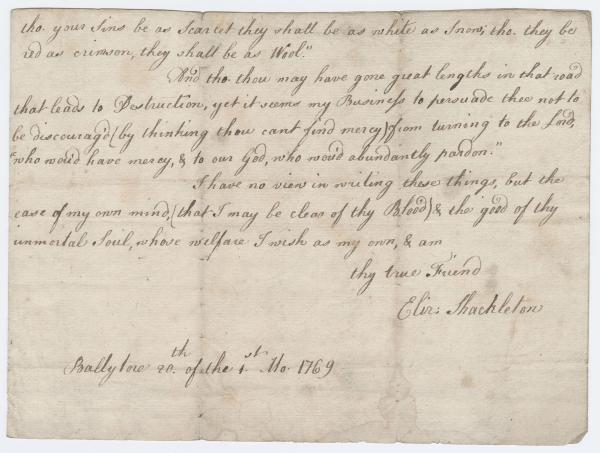 tho. your Sins be as Scarlet they shall be as white as Snow; tho. they be
red as crimson, they shall be as Wool."
And tho. thou may have gone great lengths in that road
that leads to Destruction, yet it seems my Business to persuade thee not to
be discourag'd (by thinking thou cant find mercy) from turning to the Lord,
"who wou'd have mercy, & to our God, who wou'd abundantly pardon."
I have no view in writing these things, but the
ease of my own mind, (that I may be clear of thy Blood) & the good of thy
immortal Soul, whose welfare I wish as my own, & am
thy true Friend
Eliz: Shackleton
Ballytore 20.th of the 1.st Mo. 1769